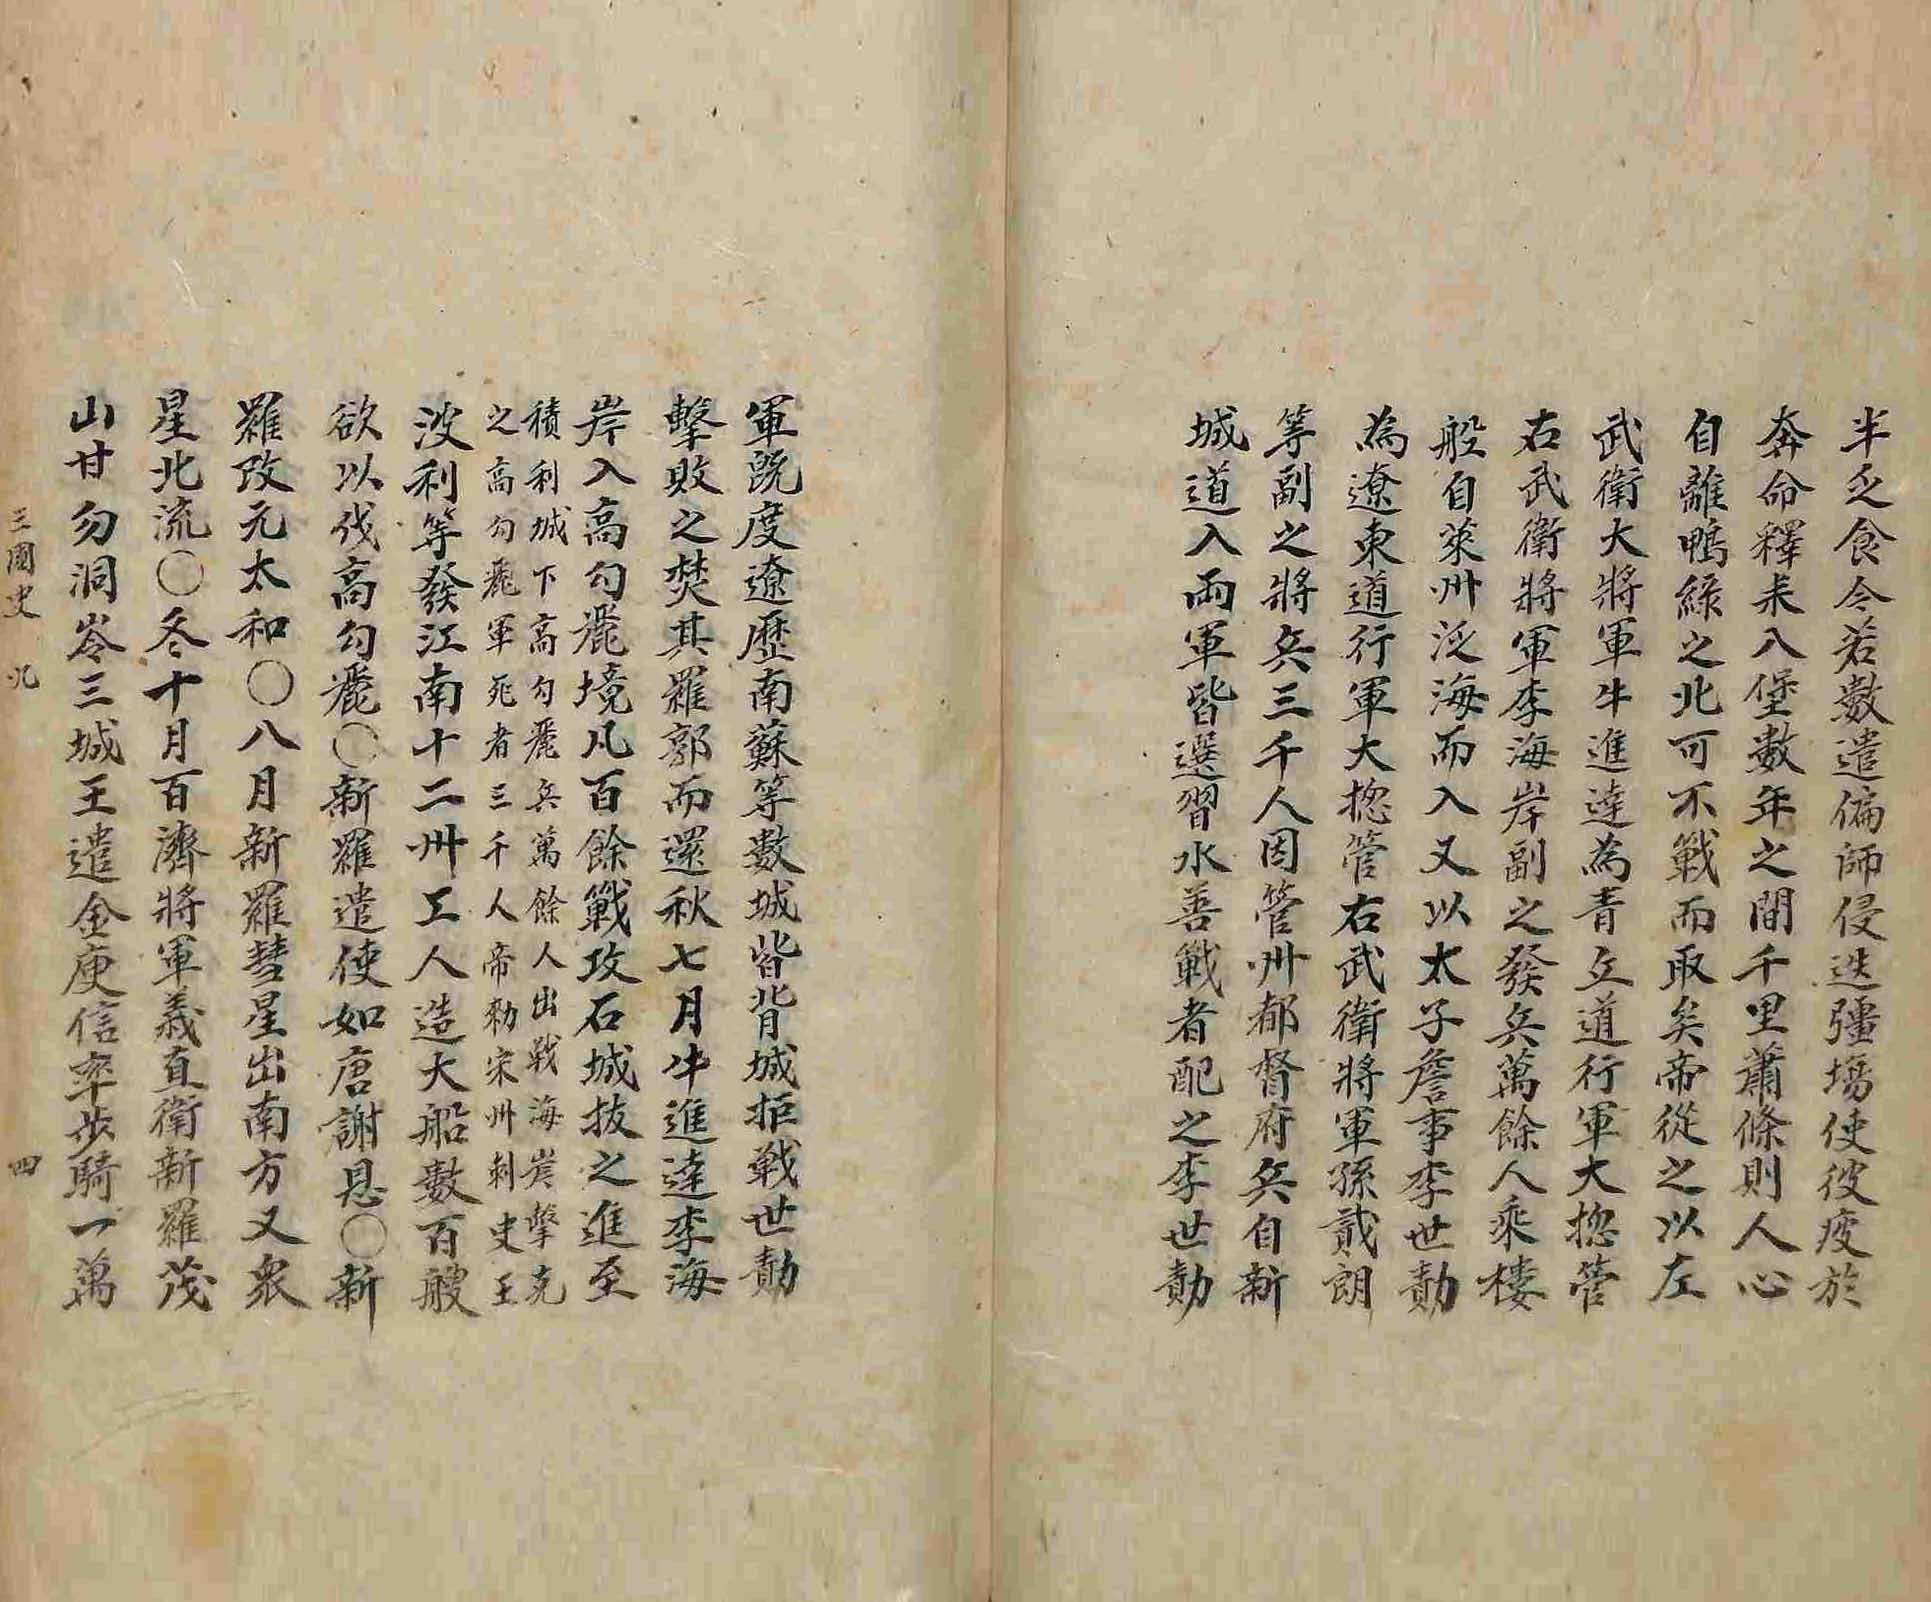 半乏食今若數遣偏師侵迭彊場使彼疲於
奔命釋耒入堡數年之間千里蕭條則人心
自離鴨綠之北可不戰而取矣帝從之以左
武衛大將軍牛進達為青丘道行軍大揔管
右武衛將軍李海岸副之發兵萬餘人乘樓
船自萊州泛海而入又以太子詹事李世勣
為遼東道行軍大揔管右武衛將軍孫貳朗
等副之將兵三千人因管州都督府兵自新
城道入兩軍皆選習水善戰者配之李世勣
軍旣度遼歷南蘇等數城皆背城拒戰世勣
擊敗之焚其羅郭而還秋七月牛進達李海
岸入高勾麗境凡百餘戰攻石城拔之進至
積利城下高勾麗兵萬餘人出戰海岸擊克
之高勾麗軍死者三千人帝勑宋州刺史王
波利等發江南十二州工人造大船數百艘
欲以伐高勾麗〇新羅遣使如唐謝恩〇新
羅改元太和〇八月新羅彗星出南方又衆
星北流〇冬十月百濟將軍義直衛新羅茂
山甘勿洞岑三城王遣金庾信率步騎一萬
三國史 九 四